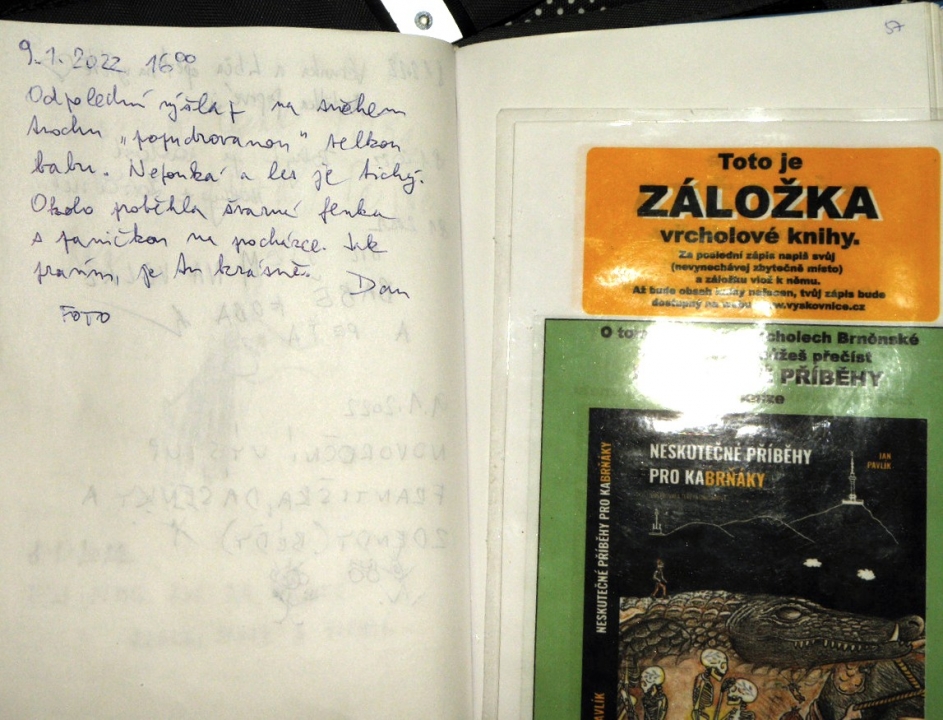 9.1.2022 16⁰⁰
Odpolední výšlap na sněhem
trochu „popudrovanou" velkou
babu. Nefouká a les je tichý.
Okolo proběhla švarná fenka
s paničkou na procházce. Jak
pravím, je tu krásně. Dan
FOTO
57
Toto je
ZÁLOŽKA
vrcholové knihy.
Za poslední zápis napiš svůj
(nevynechávej zbytečně místo)
a záložku vlož k němu.
Až bude obsah knihy nafocen, tvůj zápis bude
dostupný na webu www.vyskovnice.cz
O vrcholech Brněnské
můžeš přečíst
PŘÍBĚHY
NESKUTEČNÉ PŘÍBĚHY
PRO KABRŇÁKY
JAN
PAVLÍK
NESKUTEČNÉ PŘÍBĚHY PRO KABRŇÁKY
PAVLÍK
1.1.2022
NOVOROČNÍ VÝSTUP
FRANTIŠKA, DAŠENKY A
ZDENDY (BÉDY)